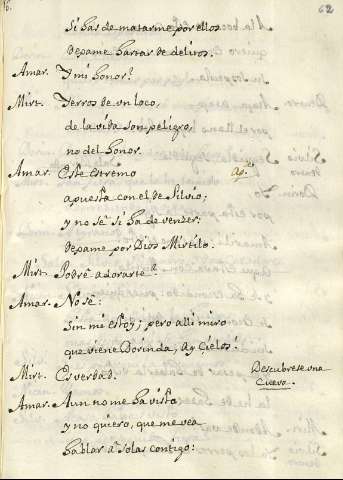 62
Si has de matarme por ellos
dexame hartar de delitos.
Amar. Y mi honor?
Mirt. Yerros de un loco,
de la vida son peligro,
no del honor.
Amar. Este estremo
apuesta con el de Silvio;
y no se si ha de venzer:
dexame por Dios Mirtilo.
Mirt. Podrè adorarte?
Amar. No sè:
sin mi estoy; pero alli miro
que viene Dorinda, ay Cielos!
Mirt. Es verdad.
Descubrese una
Cueva.
Amar. Aun no me ha visto
y no quiero, que me vea
hablar à solas contigo: